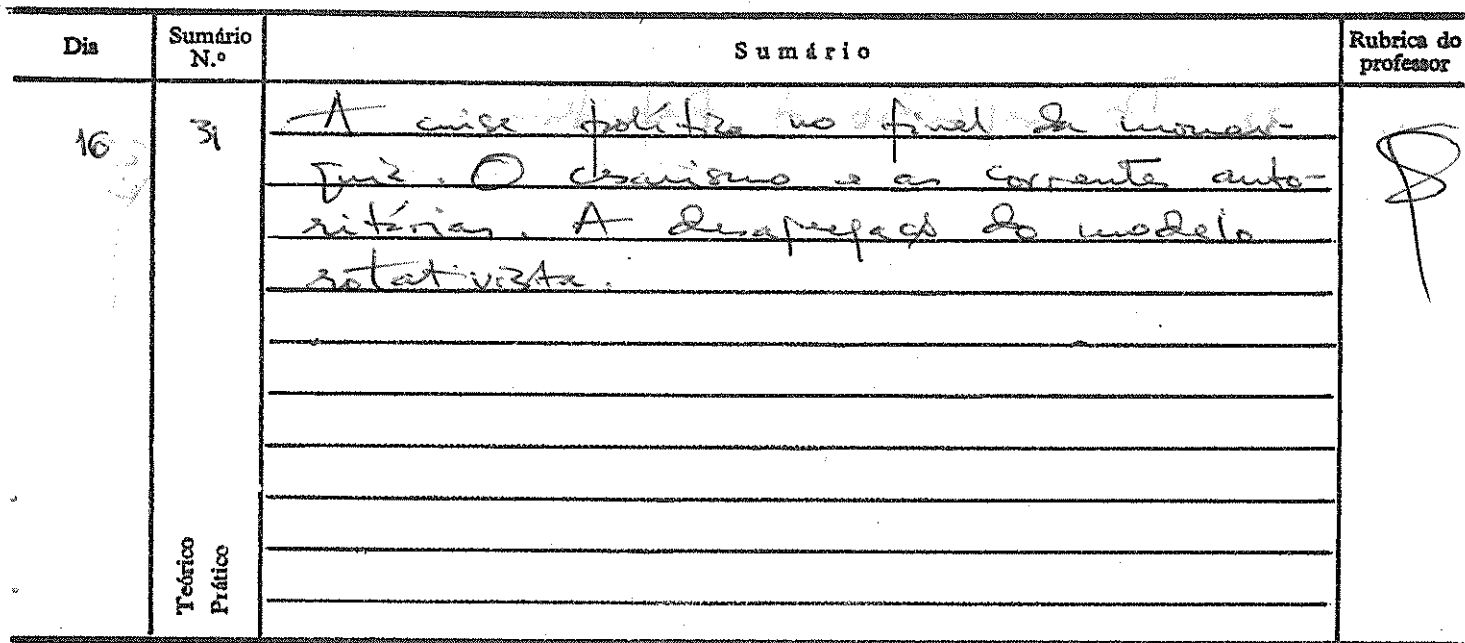 Dia Sumário N.º Sumário Rubrica do professor
16 31 A crise política no final da monar-
quia. O cesarismo e as correntes auto-
ritárias. A desagregação do modelo
rotativista.
Teórico
Prático